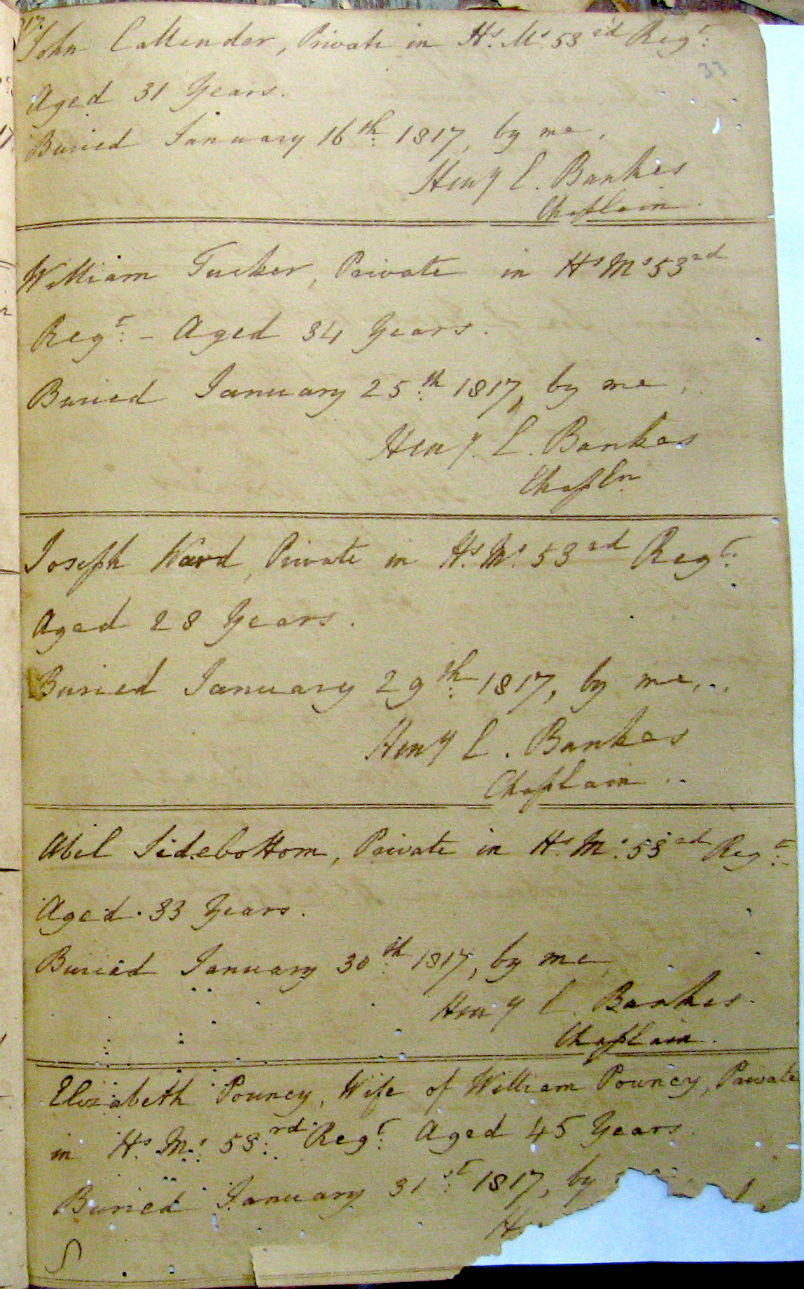 John Callender, Private in Hs. Ms. 53rd Regt.
33
Aged 31 Years.
Buried January 16th. 1817, by me,
Heny L. Bankes
Chaplain.
William Tucker, Private in Hs Ms 53rd
Regt. - Aged 34 Years.
Buried January 25th. 1817, by me,
Heny. L. Bankes
Chapln
Joseph Ward, Private in Hs. Ms. 53rd Regt.
Aged 28 Years.
Buried January 29th. 1817, by me,
Heny L. Bankes
Chaplain
Abil Sidebottom, Private in Hs. Ms. 53rd Regt.
Aged 33 Years.
Buried January 30th 1817, by me
Heny L. Bankes.
Chaplain.
Elizabeth Pouncy, Wife of William Pouncy, Private
in Hs. Ms. 53rd. Regt. Aged 45 Years
Buried January 31st. 1817, by
H